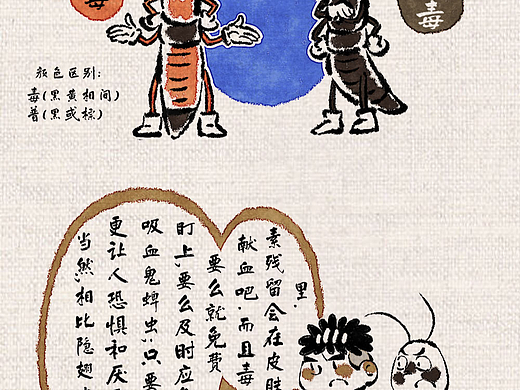 毒
毒
颜色区别:
毒(黑黄相间)
普(黑或棕)
当然,相比隐翅
更让人恐惧和厌
吸血鬼蜱虫,只要
盯上,要么及时应
要么就免费
献血吧.而且毒
素残留会在皮肤
里.